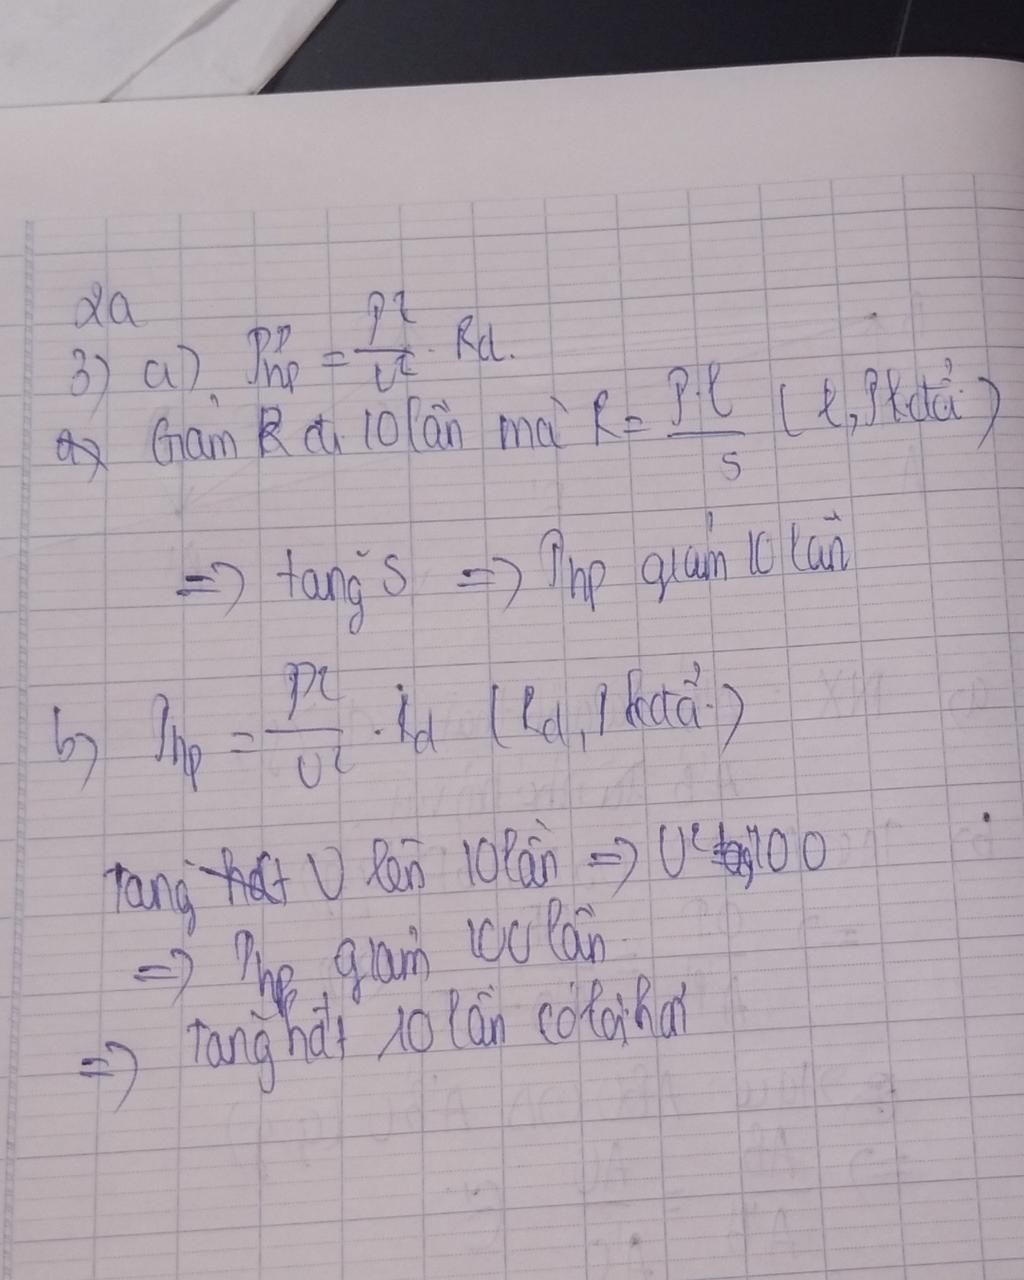 2a
3) a) Php = P²/U² . Rd.
a) Giảm R đi 10 lần mà R = ρ.l/S (l, ρ k đổi)
=> tăng S => Php giảm 10 lần
b) Php = P²/U² . Rd (Rd, P k đổi)
tăng U lên 10 lần => U² tăng 100
=> Php giảm 100 lần
=> Tăng hđt 10 lần có lợi hơn